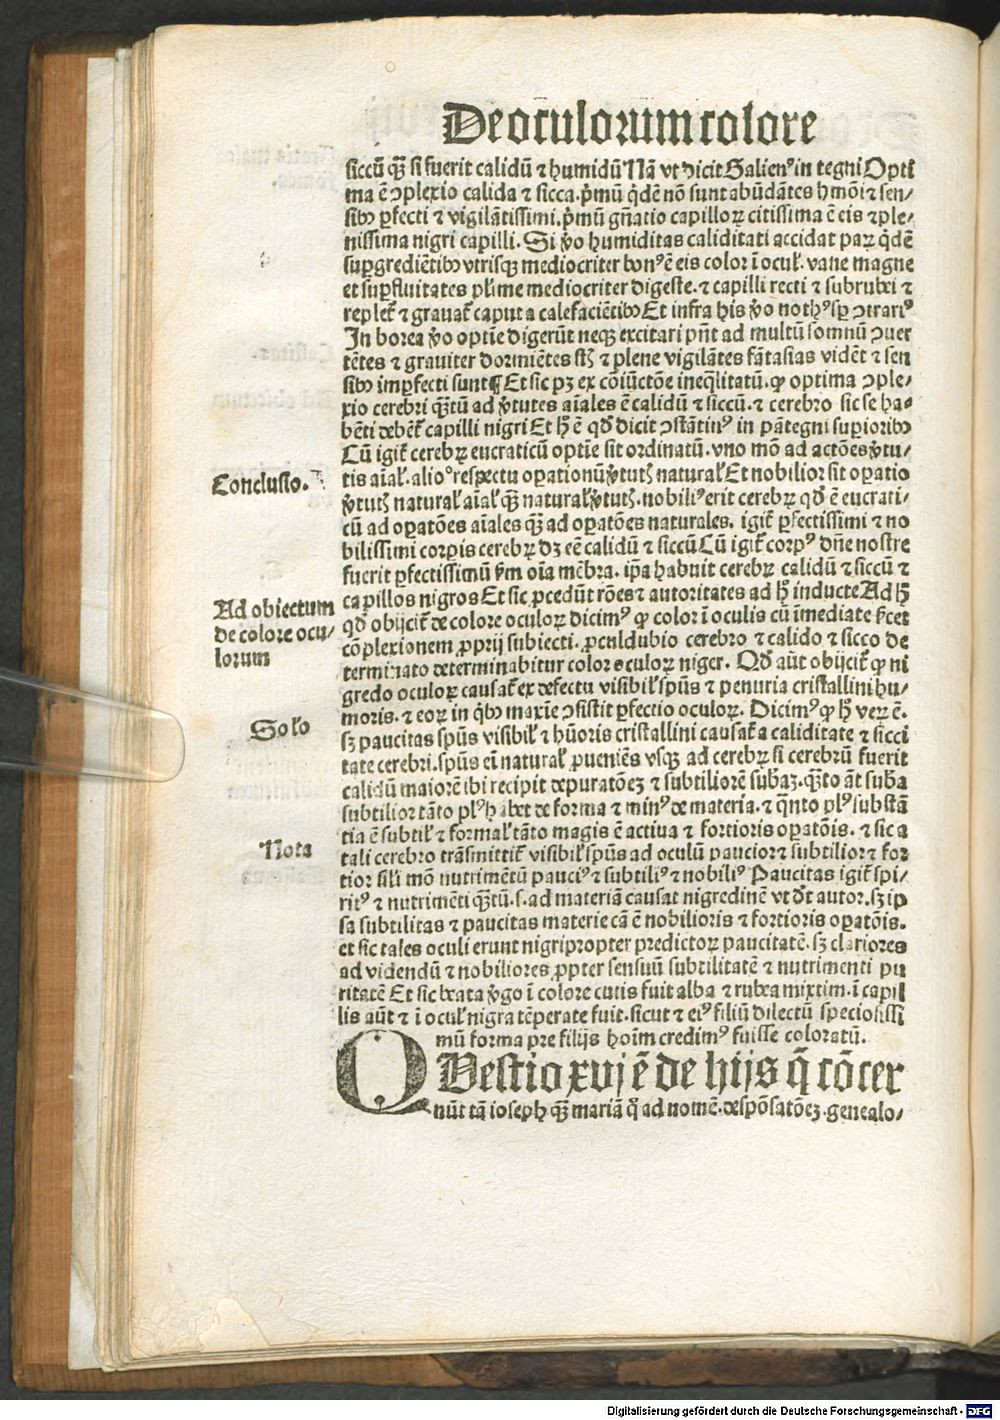 De oculorum colore
siccū qȝ si fuerit calidū ⁊ humidū Nā vt dicit Galienꝰ in tegni Opti
ma ē ↄplexio calida ⁊ sicca. p̄mū q̄dē nō sunt abūdātes hmōi ⁊ sen⸗
sibꝫ ꝑfecti ⁊ vigilātissimi. p̄mū gn̄atio capilloꝝ citissima ē eis ⁊ ple⸗
nissima nigri capilli. Si ꝟo humiditas caliditati accidat paꝝ q̄dē
suꝑgrediētibꝫ vtrisqꝫ mediocriter bonꝰ ē eis color ī ocul̓. vane magne
et suꝑfluitates pl̓ime mediocriter digeste. ⁊ capilli recti ⁊ subrubei ⁊
replet̄ ⁊ grauat̄ caput a calefaciētibꝫ Et infra his ꝟo nothꝰ sꝑ ↄtrariꝰ
In borea ꝟo optīe digerūt neqꝫ excitari pn̄t ad multū somnū ↄuer
tētes ⁊ grauiter dormiētes sꝫ ⁊ plene vigilātes fātasias vidēt ⁊ sen
sibꝫ imꝑfecti sunt ¶ Et sic pꝫ ex cōiūctōe ineq̄litatū. ꝙ optima ↄple⸗
xio cerebri qȝtū ad ꝟtutes aīales ē calidū ⁊ siccū. ⁊ cerebro sic se ha⸗
bēti debēt capilli nigri Et hͦ ē qd̓ dicit ↄstātinꝰ in pātegni suꝑioribꝫ
Cū igit̄ cerebꝝ eucraticū optīe sit ordinatū. vno mō ad actōes ꝟtu⸗
tis aīal̓. alioͦ respectu oꝑationū ꝟtutꝭ natural̓ Et nobilior sit oꝑatio
ꝟtutꝭ natural̓ aīal̓ qȝ natural̓ ꝟtutꝭ. nobiliꝰ erit cerebꝝ qd̓ ē eucrati⸗
cū ad oꝑatōes aīales qȝ ad oꝑatōes naturales. igit̄ ꝑfectissimi ⁊ no
bilissimi corꝑis cerebꝝ dꝫ eē calidū ⁊ siccū Cū igit̄ corpꝰ dn̄e nostre
fuerit ꝑfectissimū ẜm oīa mēbra. ip̄a habuit cerebꝝ calidū ⁊ siccū ⁊
capillos nigros Et sic ꝓcedūt rōes ⁊ autoritates ad hͦ inducte Ad hͦ
qd̓ obijcit̄ de colore oculoꝝ dicimꝰ ꝙ color ī oculis cū īmediate ẜcet
cōplexionem ꝓprij subiecti. ꝓculdubio cerebro ⁊ calido ⁊ sicco de
terminato determinabitur color oculoꝝ niger. Qd̓ aūt obijcit̄ ꝙ ni
gredo oculoꝝ causat̄ ex defectu visibil̓ spūs ⁊ penuria cristallini hu⸗
moris. ⁊ eoꝝ in q̄bꝫ maxīe ↄsistit ꝑfectio oculoꝝ. Dicimꝰ ꝙ hͦ veꝝ ē.
sꝫ paucitas spūs visibil̓ ⁊ hūoris cristallini causat̄ a caliditate ⁊ sicci
tate cerebri. spūs eī natural̓ ꝓueniēs vsqꝫ ad cerebꝝ si cerebrū fuerit
calidū maiorē ibi recipit depuratōeꝫ ⁊ subtiliorē sub̄aꝫ. qȝto āt sub̄a
subtilior tāto plꝰ habet de forma ⁊ minꝰ de materia. ⁊ q̄nto plꝰ substā
tia ē subtil̓ ⁊ formal̓ tāto magis ē actiua ⁊ fortioris oꝑatōis. ⁊ sic a
tali cerebro trāsmittit̄ visibil̓ spūs ad oculū paucior ⁊ subtilior ⁊ for
tior sil̓i mō nutrimētū pauciꝰ ⁊ subtiliꝰ ⁊ nobiliꝰ Paucitas igit̄ spi⸗
ritꝰ ⁊ nutrimēti qȝtū. s. ad materiā causat nigredinē vt d̓t autor. sꝫ ip
sa subtilitas ⁊ paucitas materie cā ē nobilioris ⁊ fortioris oꝑatōis.
et sic tales oculi erunt nigri propter predictoꝝ paucitatē. sꝫ clariores
ad videndū ⁊ nobiliores ꝓpter sensuū subtilitatē ⁊ nutrimenti pu
ritatē Et sic beata ꝟgo ī colore cutis fuit alba ⁊ rubea mixtim. ī capil
lis aūt ⁊ ī ocul̓ nigra tēperate fuit. sicut ⁊ eiꝰ filiū dilectū speciosissi
mū forma pre filijs hoīm credimꝰ fuisse coloratū.
QVestio xvj ē de hijs q̄ cōcer
nūt tā ioseph qȝ mariā q̄ ad nomē. despōsatōeꝫ. genealo⸗
Conclusio.
Ad obiectum
de colore ocu⸗
lorum
Solo
Nota
Digitalisierung gefördert durch die Deutsche Forschungsgemeinschaft - DFG